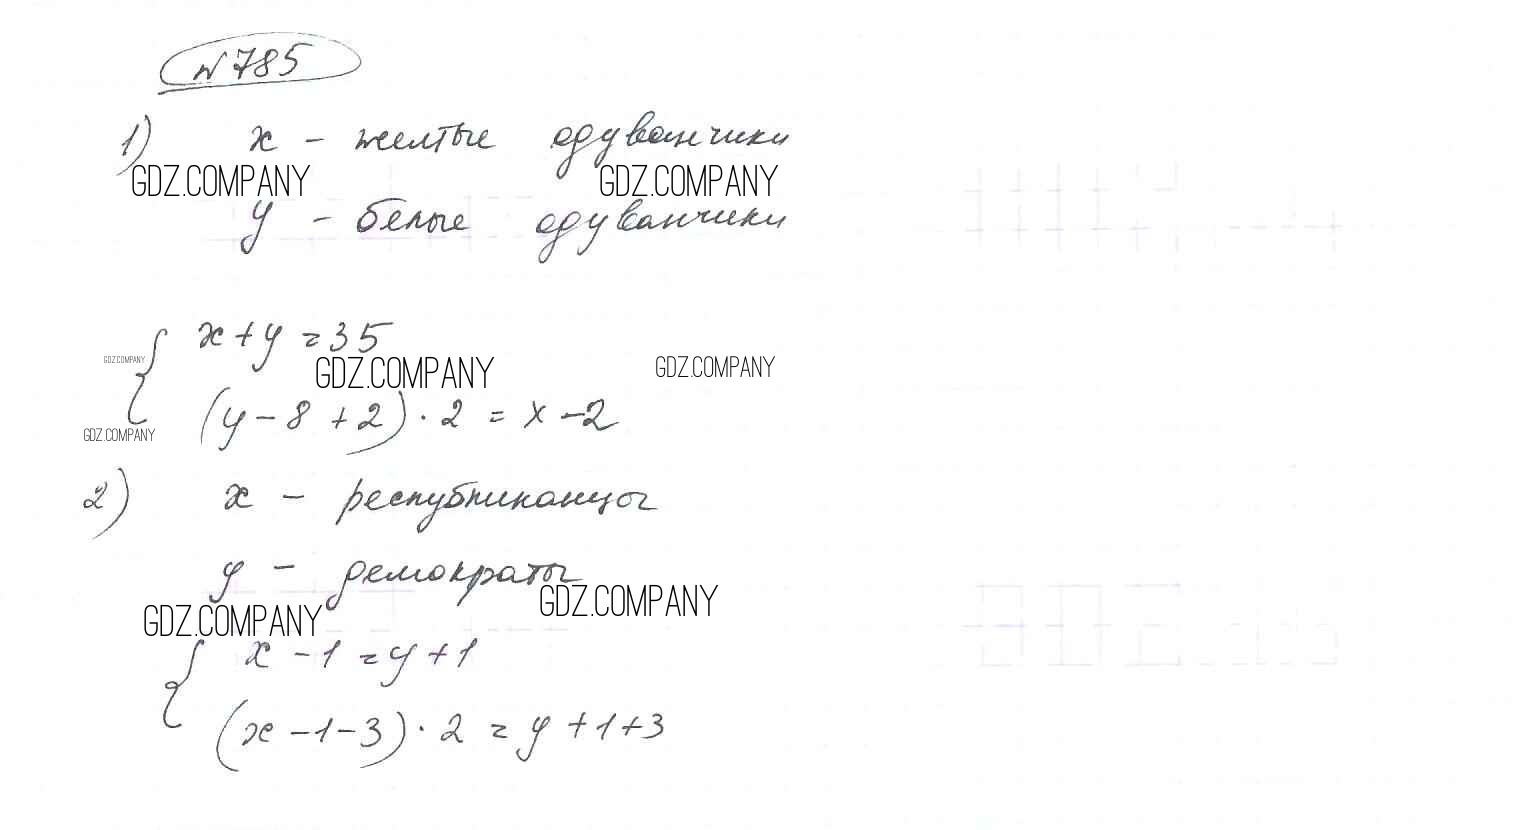 №785
1) x – желтые одуванчики
GDZ.COMPANY GDZ.COMPANY
y – белые одуванчики
x + y = 35
GDZ.COMPANY GDZ.COMPANY GDZ.COMPANY
(y – 8 + 2) · 2 = x – 2
GDZ.COMPANY
2) x – республиканцы
y – демократы
GDZ.COMPANY GDZ.COMPANY
x – 1 = y + 1
(x – 1 – 3) · 2 = y + 1 + 3